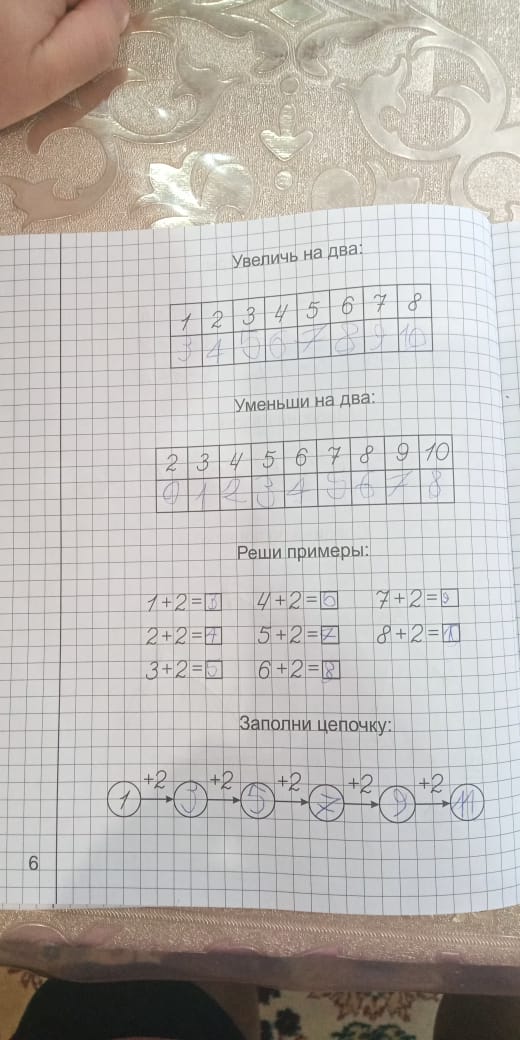 Увеличь на два:
1 2 3 4 5 6 7 8
3 4 5 6 7 8 9 10
Уменьши на два:
2 3 4 5 6 7 8 9 10
0 1 2 3 4 5 6 7 8
Реши примеры:
1+2=3 4+2=6 7+2=9
2+2=4 5+2=7 8+2=10
3+2=5 6+2=8
Заполни цепочку:
+2 +2 +2 +2 +2
1 3 5 7 9 11
6